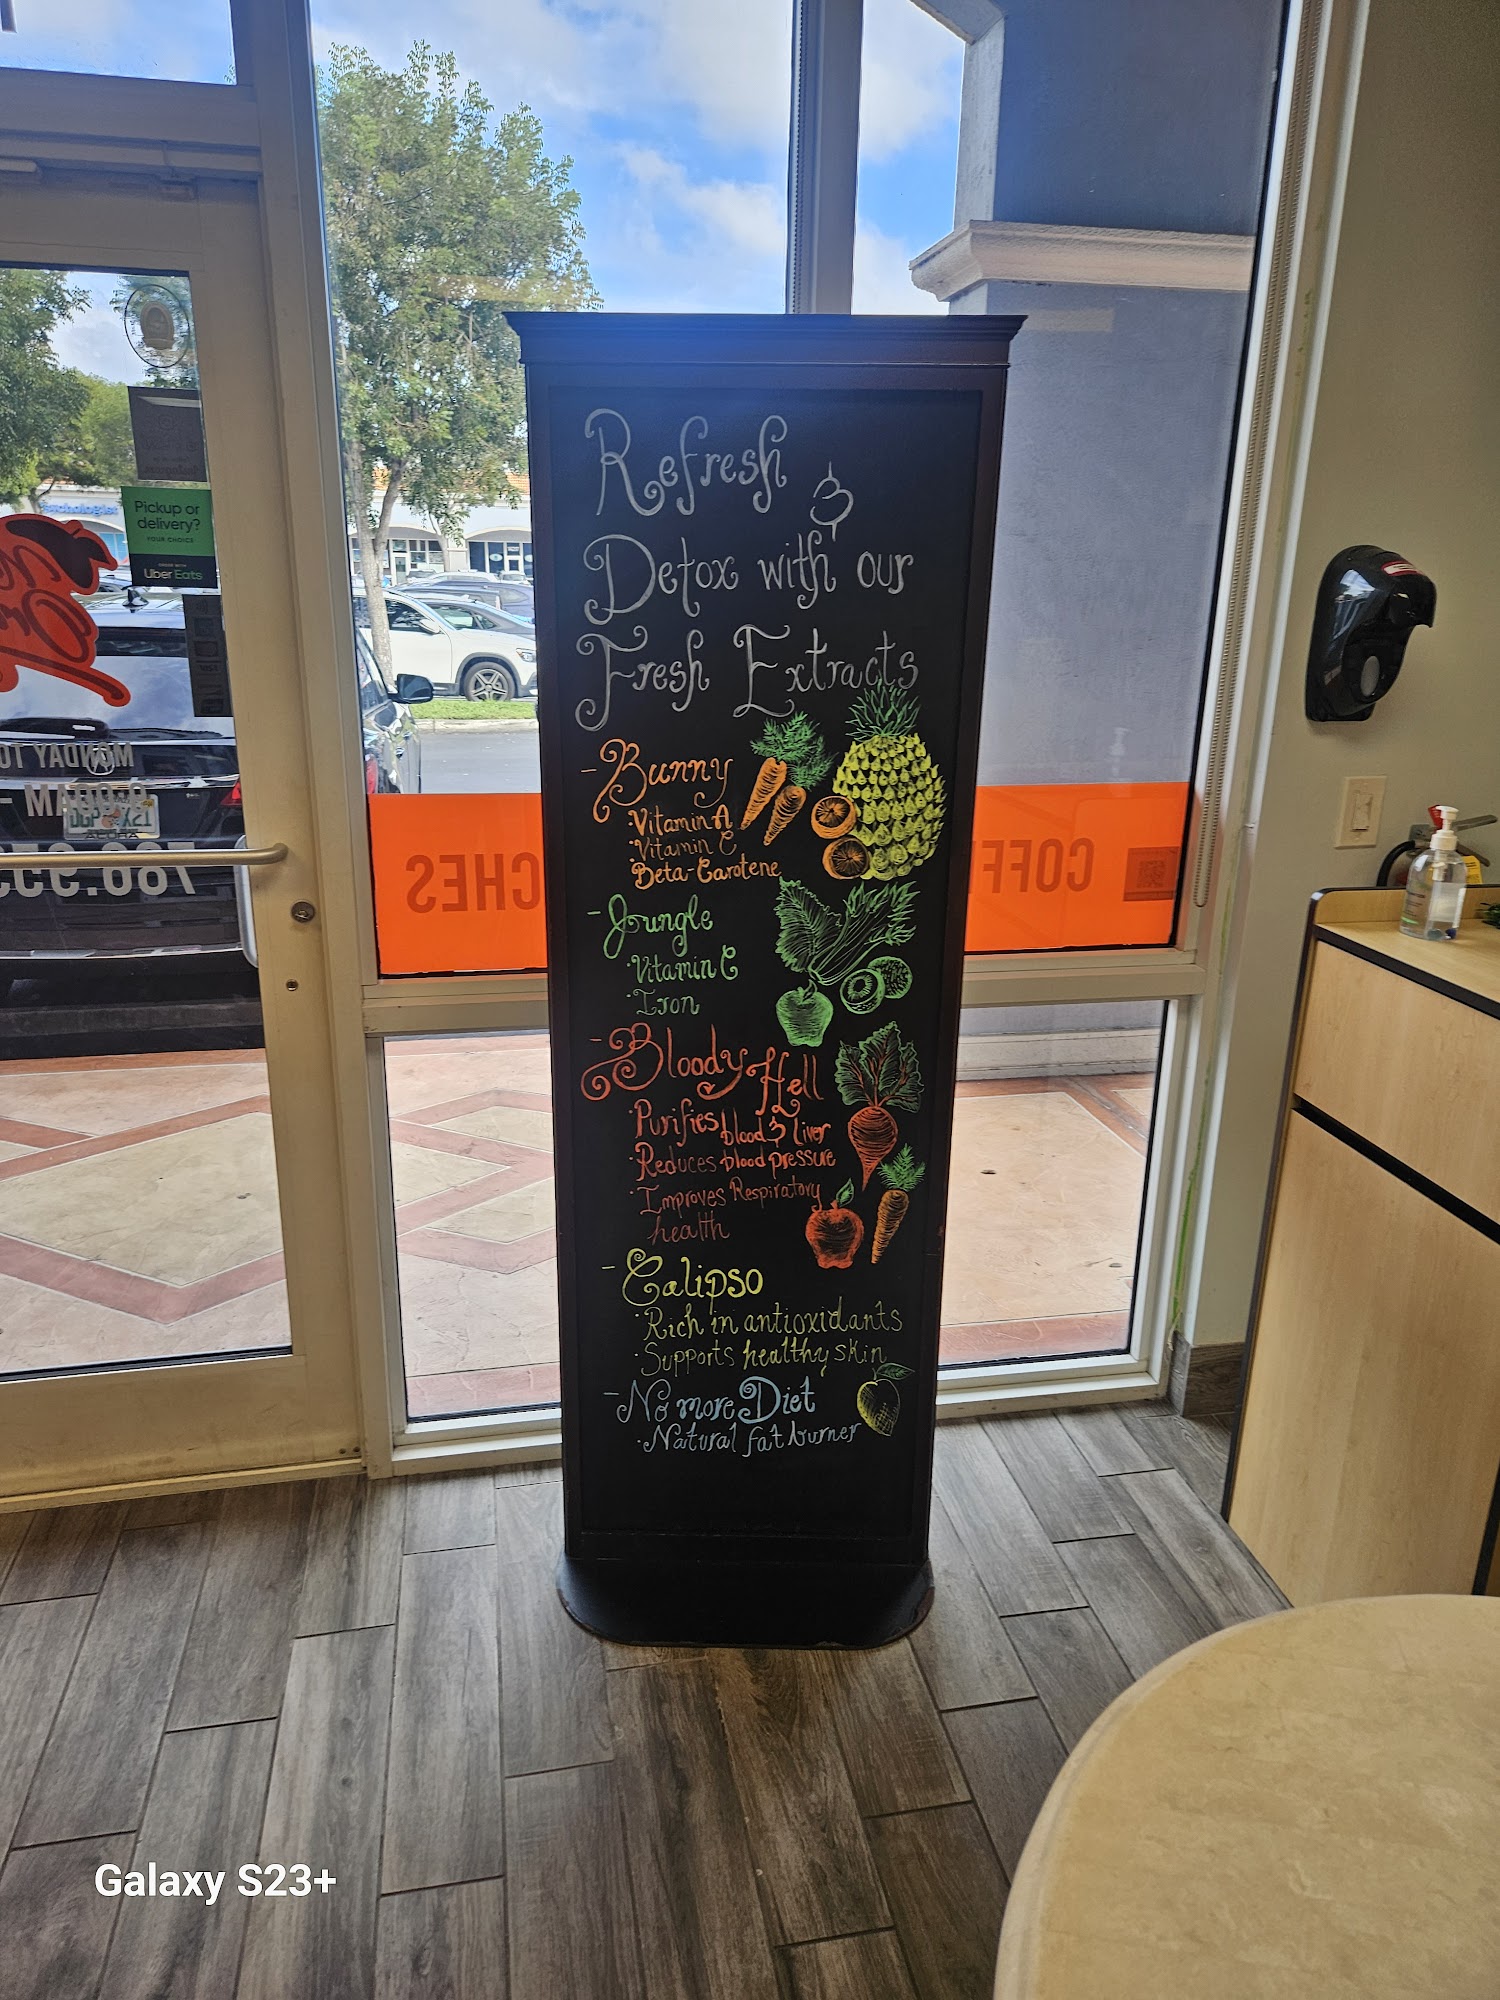 Refresh &
Detox with our
Fresh Extracts
- Bunny
· Vitamin A
· Vitamin C
· Beta-Carotene
- Jungle
· Vitamin C
· Iron
- Bloody Hell
· Purifies blood & liver
· Reduces blood pressure
· Improves Respiratory
health
- Calipso
· Rich in antioxidants
· Supports healthy skin
- No more Diet
· Natural fat burner
Pickup or
delivery?
YOUR CHOICE
Uber Eats
MONDAY TO
AM -
786.955
CHES
COFF
Galaxy S23+